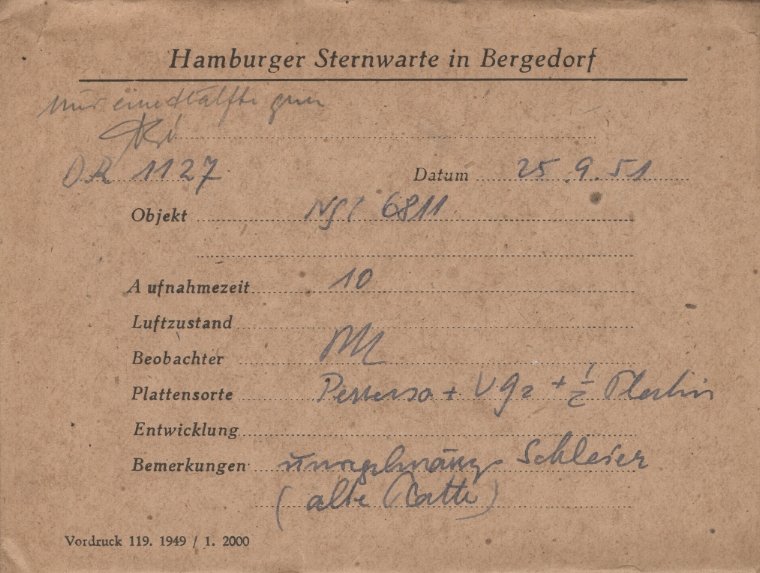 Hamburger Sternwarte in Bergedorf
nur eine Hälfte
DR 1127 Datum 25.9.51
Objekt NGC 6811
Aufnahmezeit 10
Luftzustand
Beobachter
Plattensorte Perserso + VG2 + 1/2 Platin
Entwicklung
Bemerkungen unregelmäng. Schleier
(alte Platte)
Vordruck 119. 1949 / 1. 2000